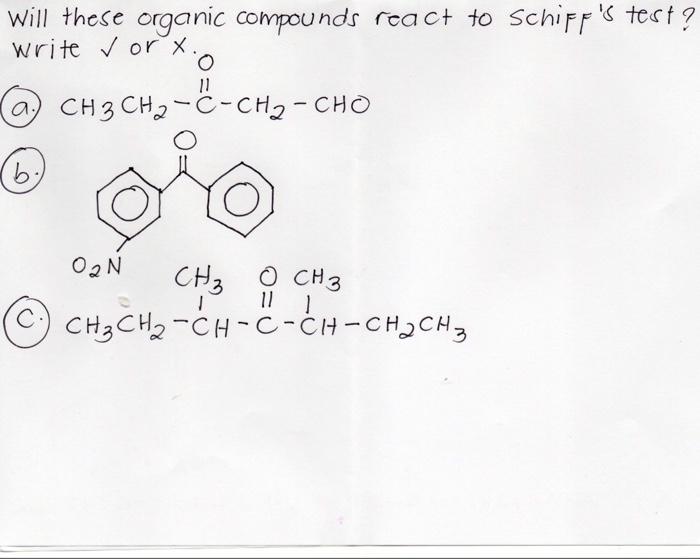 Will these organic compounds react to Schiff's test?
Write ✓ or X.
O
||
a. CH3CH2-C-CH2-CHO
O
b.
O2N
CH3 O CH3
| || |
c. CH3CH2-CH-C-CH-CH2CH3